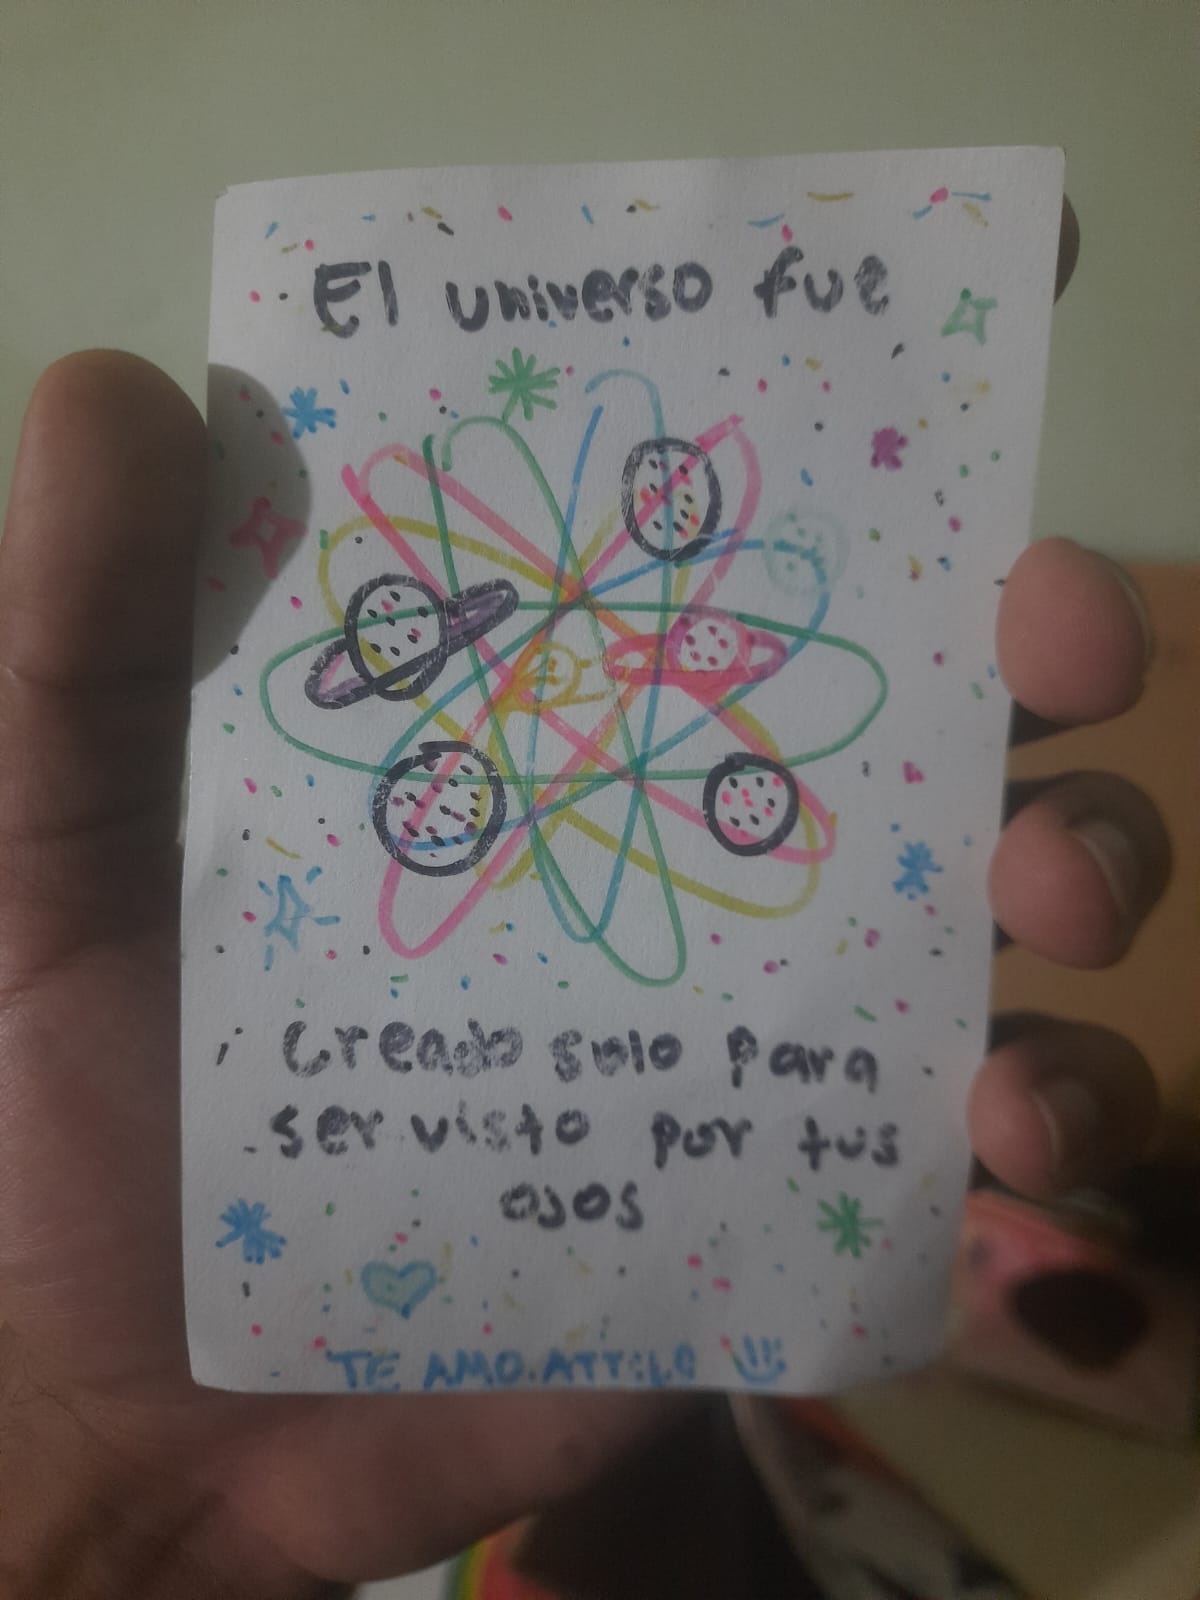 El universo fue
Creado solo para
ser visto por tus
ojos
TE AMO. ATT: LO